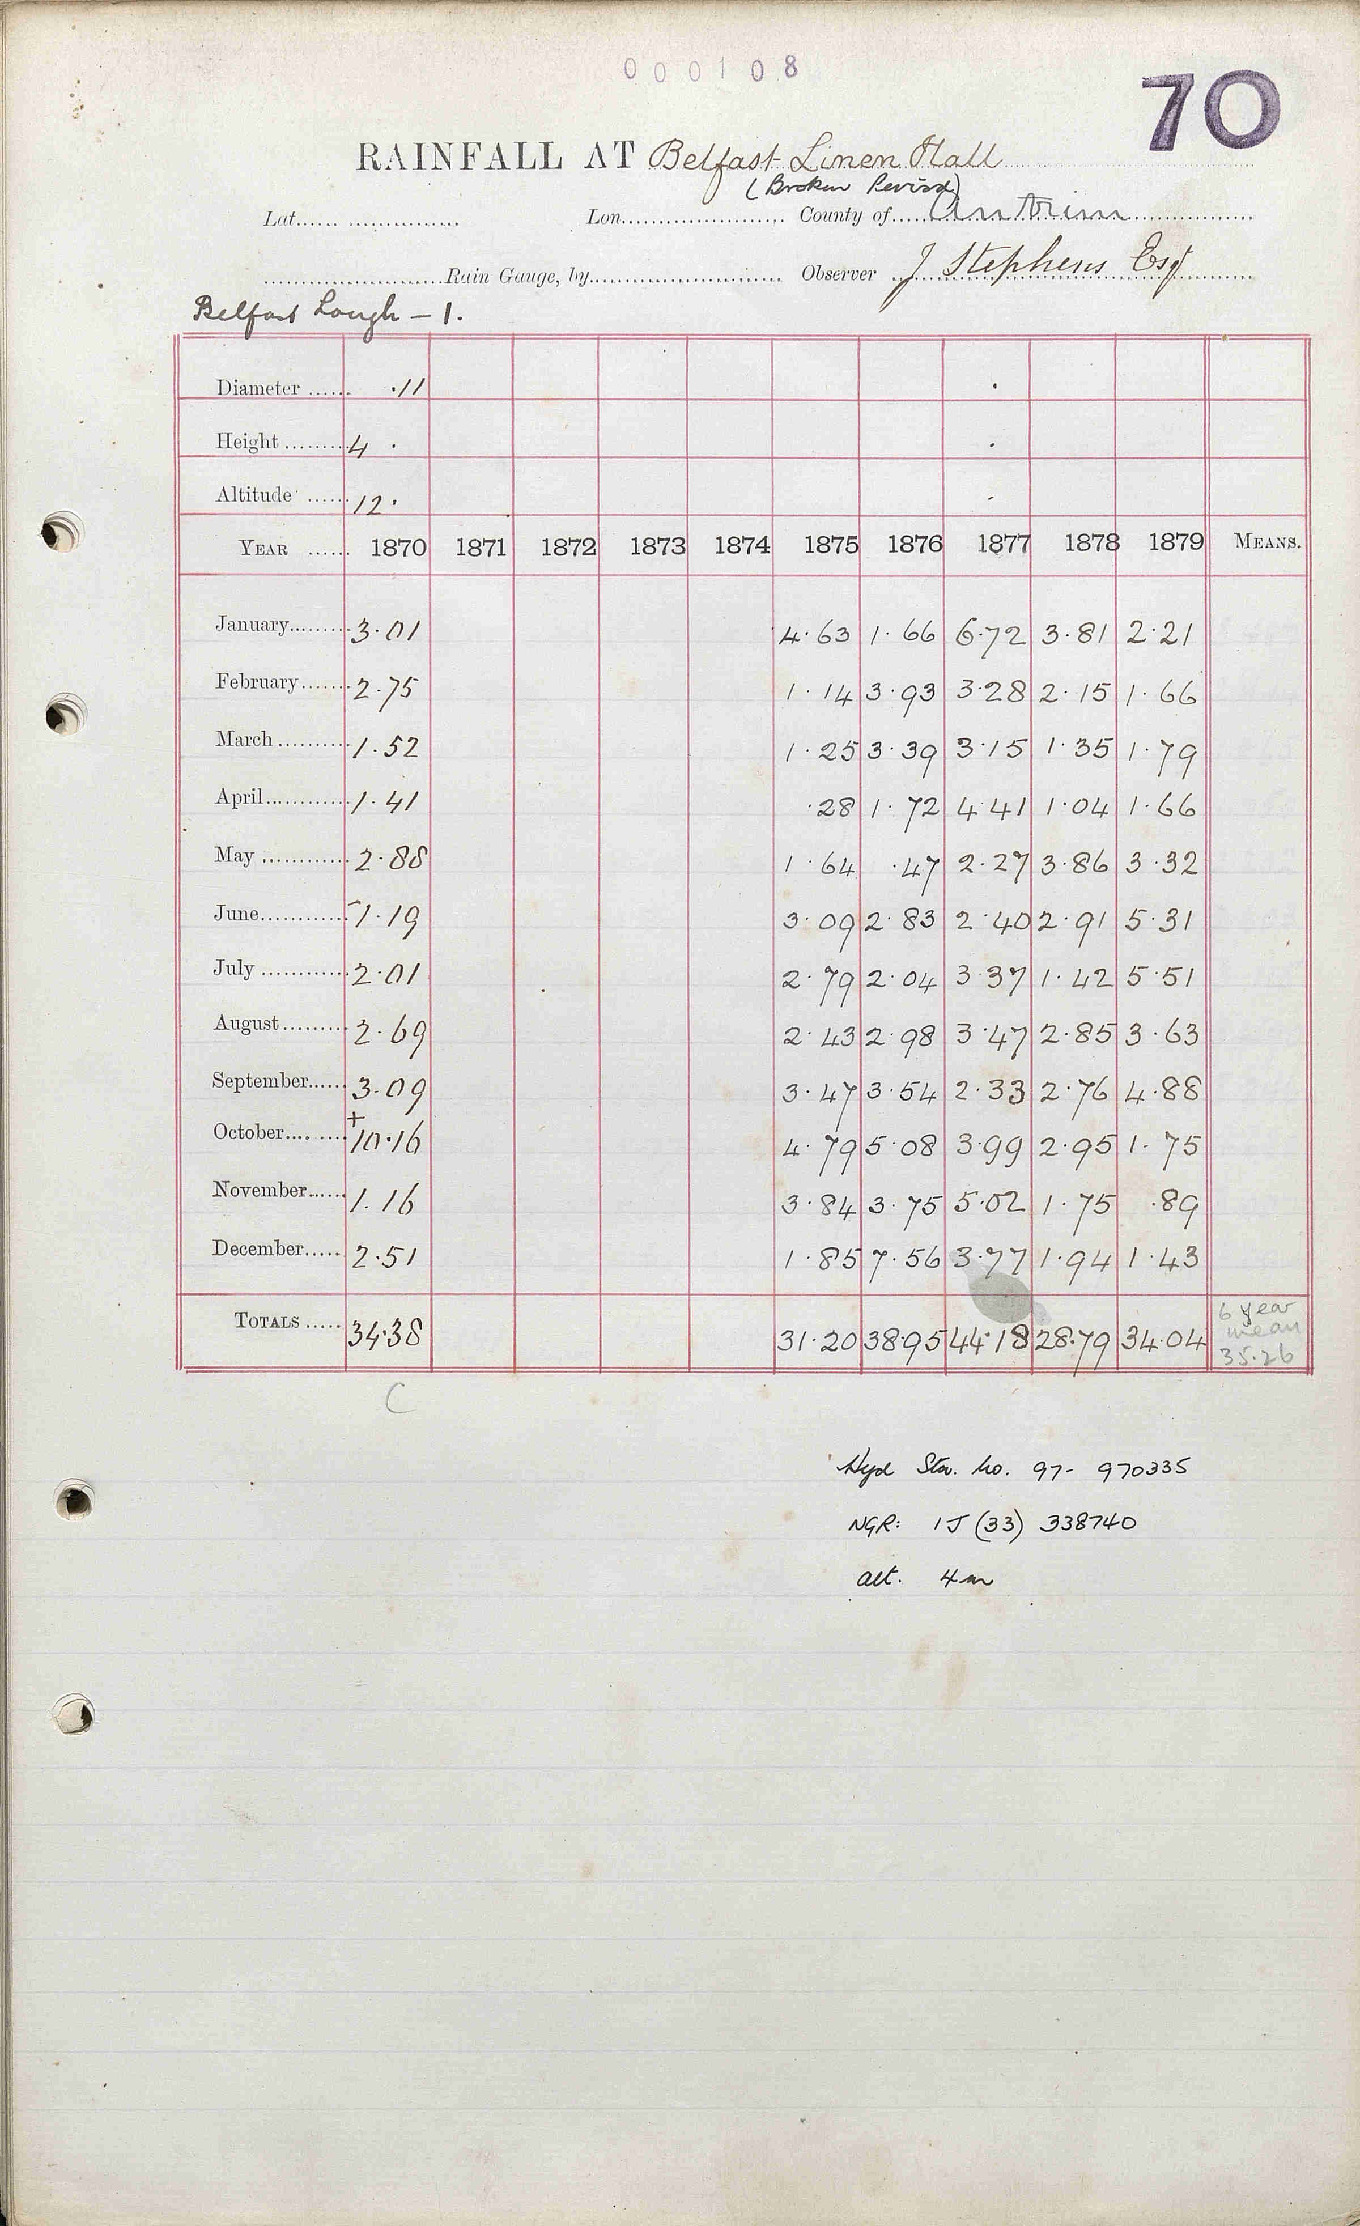 000108
70
RAINFALL AT Belfast Linen Hall
(Broken Period)
Lat. Lon. County of Antrim
Rain Gauge, by Observer J Stephens Esq
Belfast Lough – 1.
Diameter ...... ·11
Height ......... 4 ·
Altitude ...... 12 ·
YEAR ...... 1870 1871 1872 1873 1874 1875 1876 1877 1878 1879 MEANS.
January......... 3·01 4·63 1·66 6·72 3·81 2·21
February....... 2·75 1·14 3·93 3·28 2·15 1·66
March .......... 1·52 1·25 3·39 3·15 1·35 1·79
April............ 1·41 ·28 1·72 4·41 1·04 1·66
May ............ 2·88 1·64 ·47 2·27 3·86 3·32
June............ 1·19 3·09 2·83 2·40 2·91 5·31
July ............ 2·01 2·79 2·04 3·37 1·42 5·51
August......... 2·69 2·43 2·98 3·47 2·85 3·63
September...... 3·09 3·47 3·54 2·33 2·76 4·88
October......... + 10·16 4·79 5·08 3·99 2·95 1·75
November...... 1·16 3·84 3·75 5·02 1·75 ·89
December..... 2·51 1·85 7·56 3·77 1·94 1·43
TOTALS ..... 34·38 31·20 38·95 44·18 28·79 34·04 6 year mean 35·26
C
Hyd Stn. No. 97- 970335
NGR: IJ (33) 338740
alt. 4m